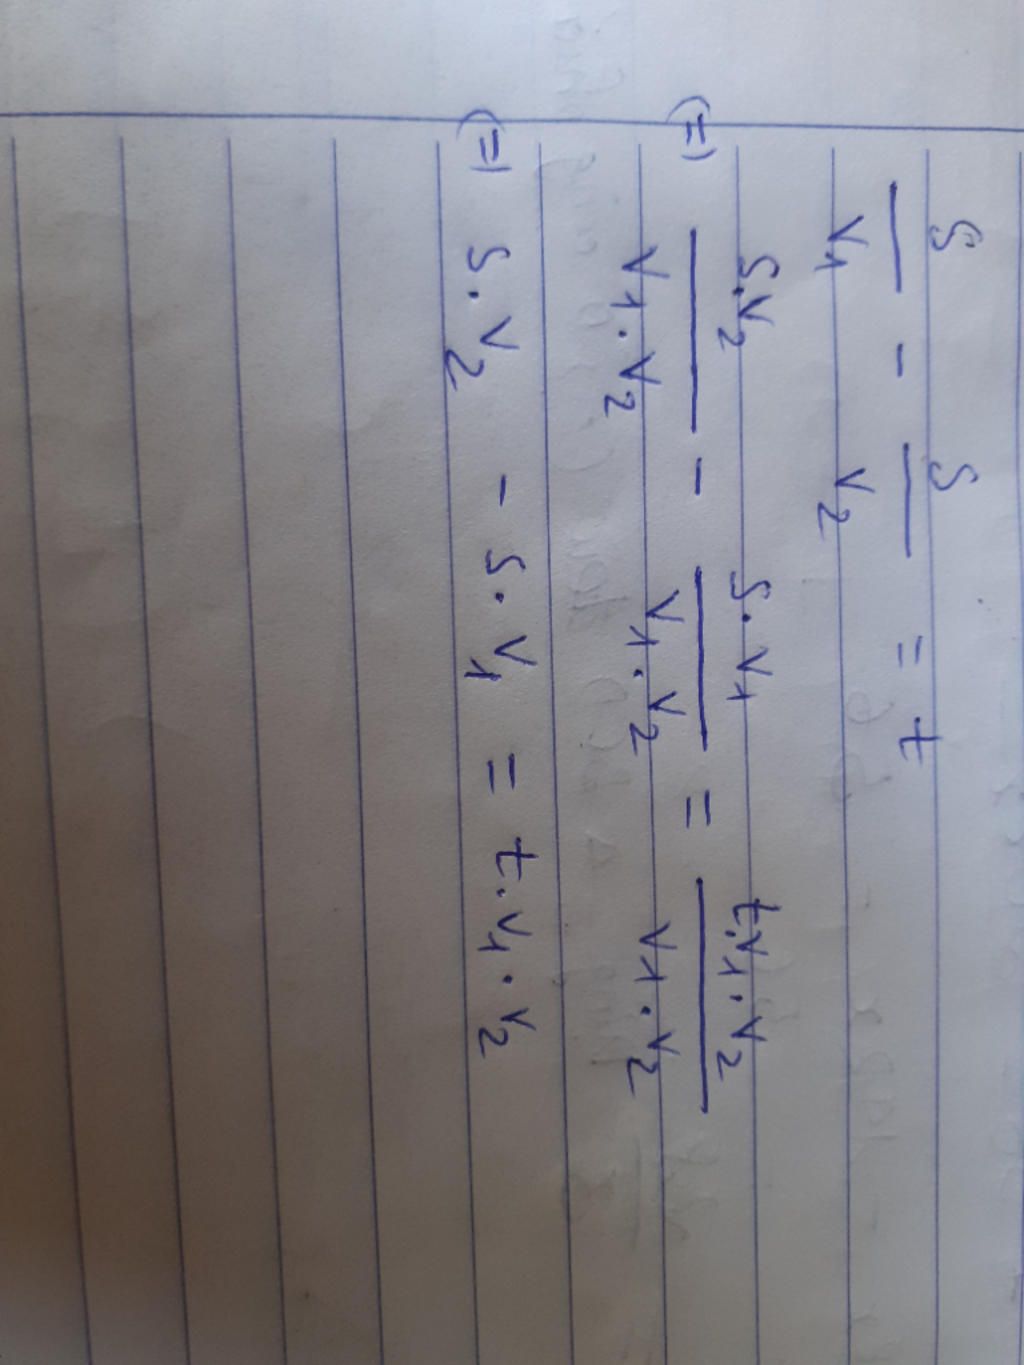 S/V₁ - S/V₂ = t
(=) S.V₂/V₁.V₂ - S.V₁/V₁.V₂ = t.V₁.V₂/V₁.V₂
(=) S.V₂ - S.V₁ = t.V₁.V₂